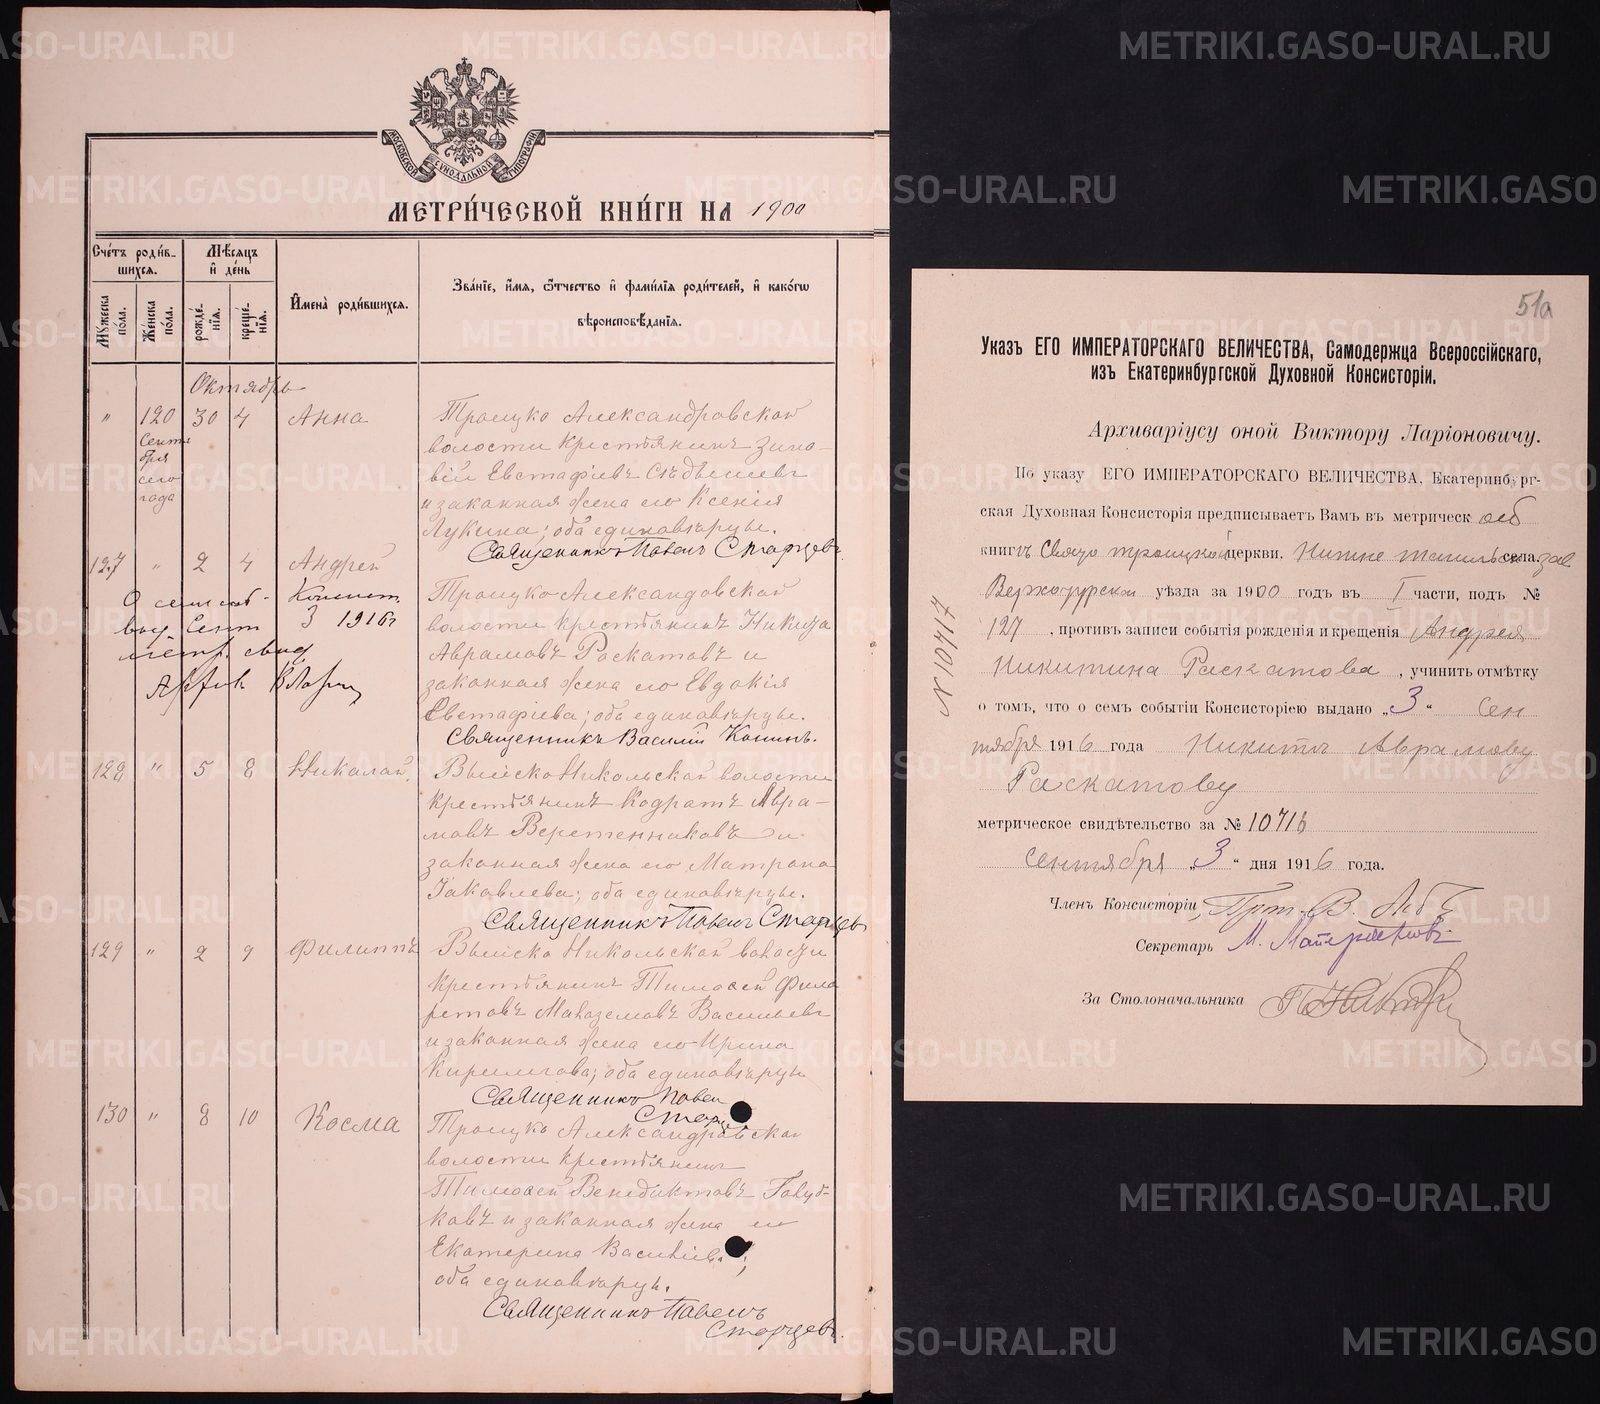 МОСКОВСКОЙ СУНОДАЛЬНОЙ ТИПОГРАФІИ
МЕТРИ́ЧЕСКОЙ КНИ́ГИ НА 1900
Сче́тъ роди́в-
шихся.
Мѣсяцъ
и́ де́нь
Мꙋжеска
по́ла.
Же́нска
по́ла.
рожде́-
нїѧ.
креще́-
нїѧ.
И҆мена̀ роди́вшихся.
Зва́нїе, и҆́мѧ, ѻ҆́тчество и҆ фами́лїѧ роди́телей, и҆ како́гѡ
вѣроисповѣ́данїѧ.
Октябрь
" 120 30 4 Анна
Сентя
бря
сего
года
Троицко Александровской
волости крестьянинъ Зино-
вій Евстафіевъ
и законная жена его Ксенія
Лукина; оба единовѣрцы.
Священникъ Павелъ Старцевъ.
127 " 2 4 Андрей
О семъ
выд. Сент 3 1916 г
метр. свид
Троицко Александровской
волости крестьянинъ Никита
Аврамовъ Раскатовъ и
законная жена его Евдокія
Евстафіева; оба единовѣрцы.
Священникъ Василій Конинъ.
128 " 5 8 Николай.
Выйско Никольской волости
крестьянинъ Кодратъ Авра-
мовъ Веретенниковъ и
законная жена его Матрона
Іаковлева; оба единовѣрцы.
Священникъ Павелъ Старцевъ
129 " 2 9 Филиппъ
Выйско Никольской волости
крестьянинъ Тимоѳей Фила
ретовъ Васильевъ
и законная жена его Ирина
Кирилова; оба единовѣрцы
Священникъ Павел
Старце
130 " 8 10 Косма
Троицко Александровской
волости крестьянинъ
Тимоѳей Венедиктовъ Голуб-
ковъ и законная жена его
Екатерина Василіев. ;
оба единовѣрцы.
Священникъ Павелъ
Старцевъ.
51а
Указъ ЕГО ИМПЕРАТОРСКАГО ВЕЛИЧЕСТВА, Самодержца Всероссійскаго,
изъ Екатеринбургской Духовной Консисторіи.
Архиваріусу оной Виктору Ларіоновичу.
По указу ЕГО ИМПЕРАТОРСКАГО ВЕЛИЧЕСТВА, Екатеринбург-
ская Духовная Консисторія предписываетъ Вамъ въ метрическ ой
книгѣ Свято троицкой церкви. Нижне тагильск села. зав
Верхотурскаго уѣзда за 1900 годъ въ I части, подъ №
127 , противъ записи событія рожденія и крещенія Андрея
Никитина Раскатова , учинить отмѣтку
о томъ, что о семъ событіи Консисторіею выдано „3" Сен
тября 1916 года Никитѣ Аврамову
Раскатову
метрическое свидѣтельство за № 10716
сентября „3" дня 1916 года.
№ 10717
Членъ Консисторіи Прт. В.
Секретарь М.
За Столоначальника
METRIKI.GASO-URAL.RU